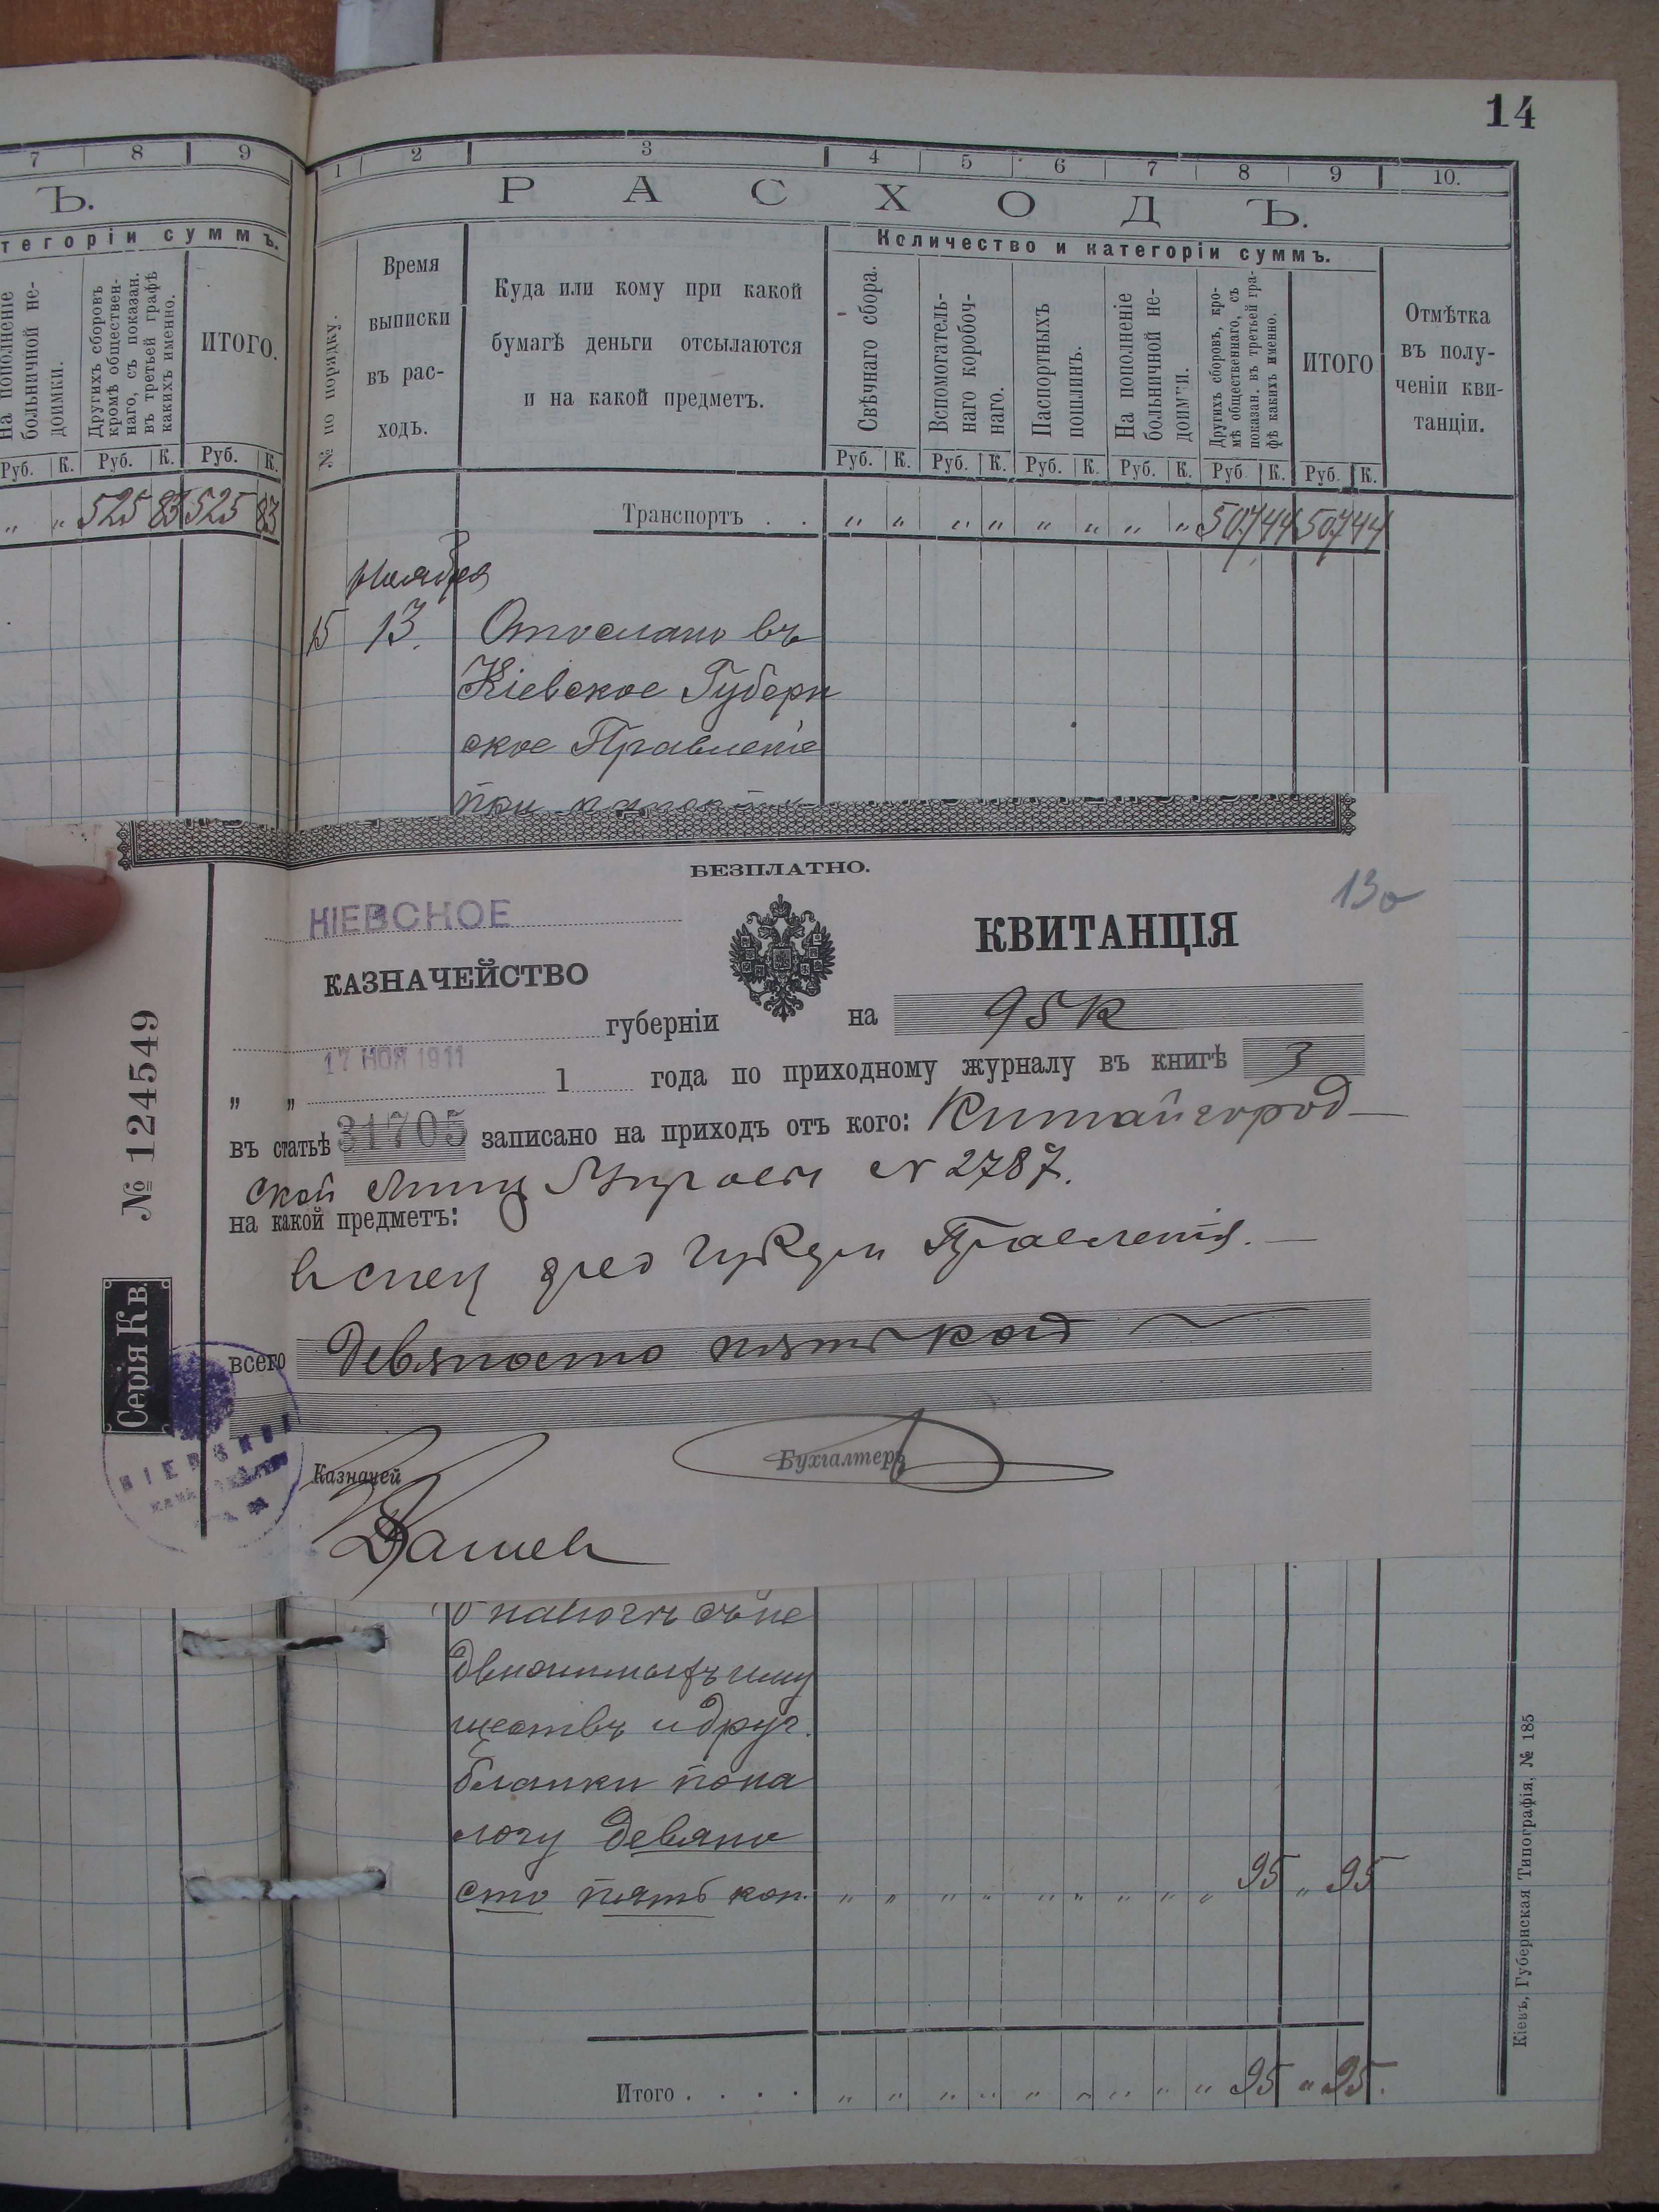 14
7 8 9
Ъ.
тегоріи суммъ.
На пополненіе больничной недоимки.
Другихъ сборовъ кромѣ общественнаго, съ показан. въ третьей графѣ какихъ именно.
ИТОГО.
Руб. К. Руб. К. Руб. К.
„ „ 525 83 525 83
1 2 3 4 5 6 7 8 9 10.
РАСХОДЪ.
Количество и категоріи суммъ.
№ по порядку.
Время выписки въ расходъ.
Куда или кому при какой
бумагѣ деньги отсылаются
и на какой предметъ.
Свѣчнаго сбора.
Вспомогательнаго коробочнаго.
Паспортныхъ пошлинъ.
На пополненіе больничной недоимки.
Других сборовъ, кромѣ общественнаго, съ показан. въ третьей графѣ какихъ именно.
ИТОГО
Отмѣтка
въ полученіи квитанціи.
Руб. К. Руб. К. Руб. К. Руб. К. Руб. К. Руб. К.
Транспортъ . . „ „ „ „ „ „ „ „ 507 44 507 44
Ноября
15 13. Отослано въ
Кіевское Губерн
ское Правленіе
при
БЕЗПЛАТНО.
130
КІЕВСКОЕ
КАЗНАЧЕЙСТВО
КВИТАНЦІЯ
губерніи на 95 к
17 НОЯ 1911
„ „ 1 года по приходному журналу въ книгѣ 3
въ статьѣ 31705 записано на приходъ отъ кого: Китайгород-
ской № 2787.
на какой предметъ:
Правленія.
всего Девяносто пять коп
№ 124549
Серія Кв.
КІЕВСКОЕ
Казнaчей
Бухгалтеръ
налогѣ съ не
движимыхъ иму
ществъ и друг.
бланки по на
логу девяно
сто пять коп. „ „ „ „ „ „ „ „ „ 95 „ 95
Итого . . . . „ „ „ „ „ „ „ „ „ 95 „ 95.
Кіевъ, Губернская Типографія, № 185